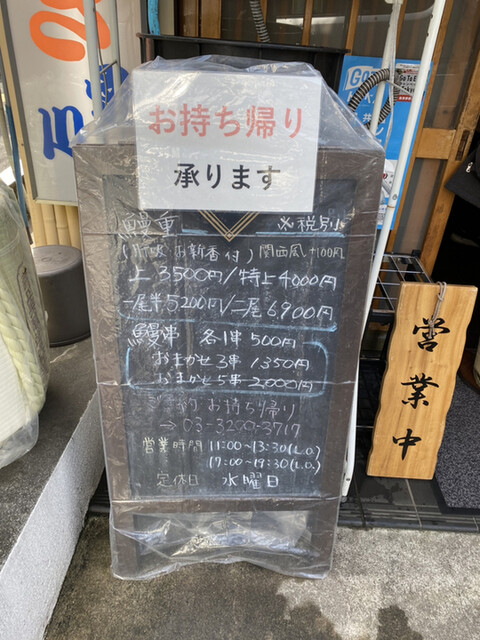 お持ち帰り
承ります
鰻重 ※税別
(肝吸 お新香付) 関西風+100円
上 3500円/特上4000円
一尾半5200円/二尾6900円
鰻串 各1串 500円
おまかせ3串 1350円
おまかせ5串 2000円
ご予約 お持ち帰り
→03-3200-3717
営業時間 11:00~13:30(L.O.)
17:00~19:30(L.O.)
定休日 水曜日
営業中